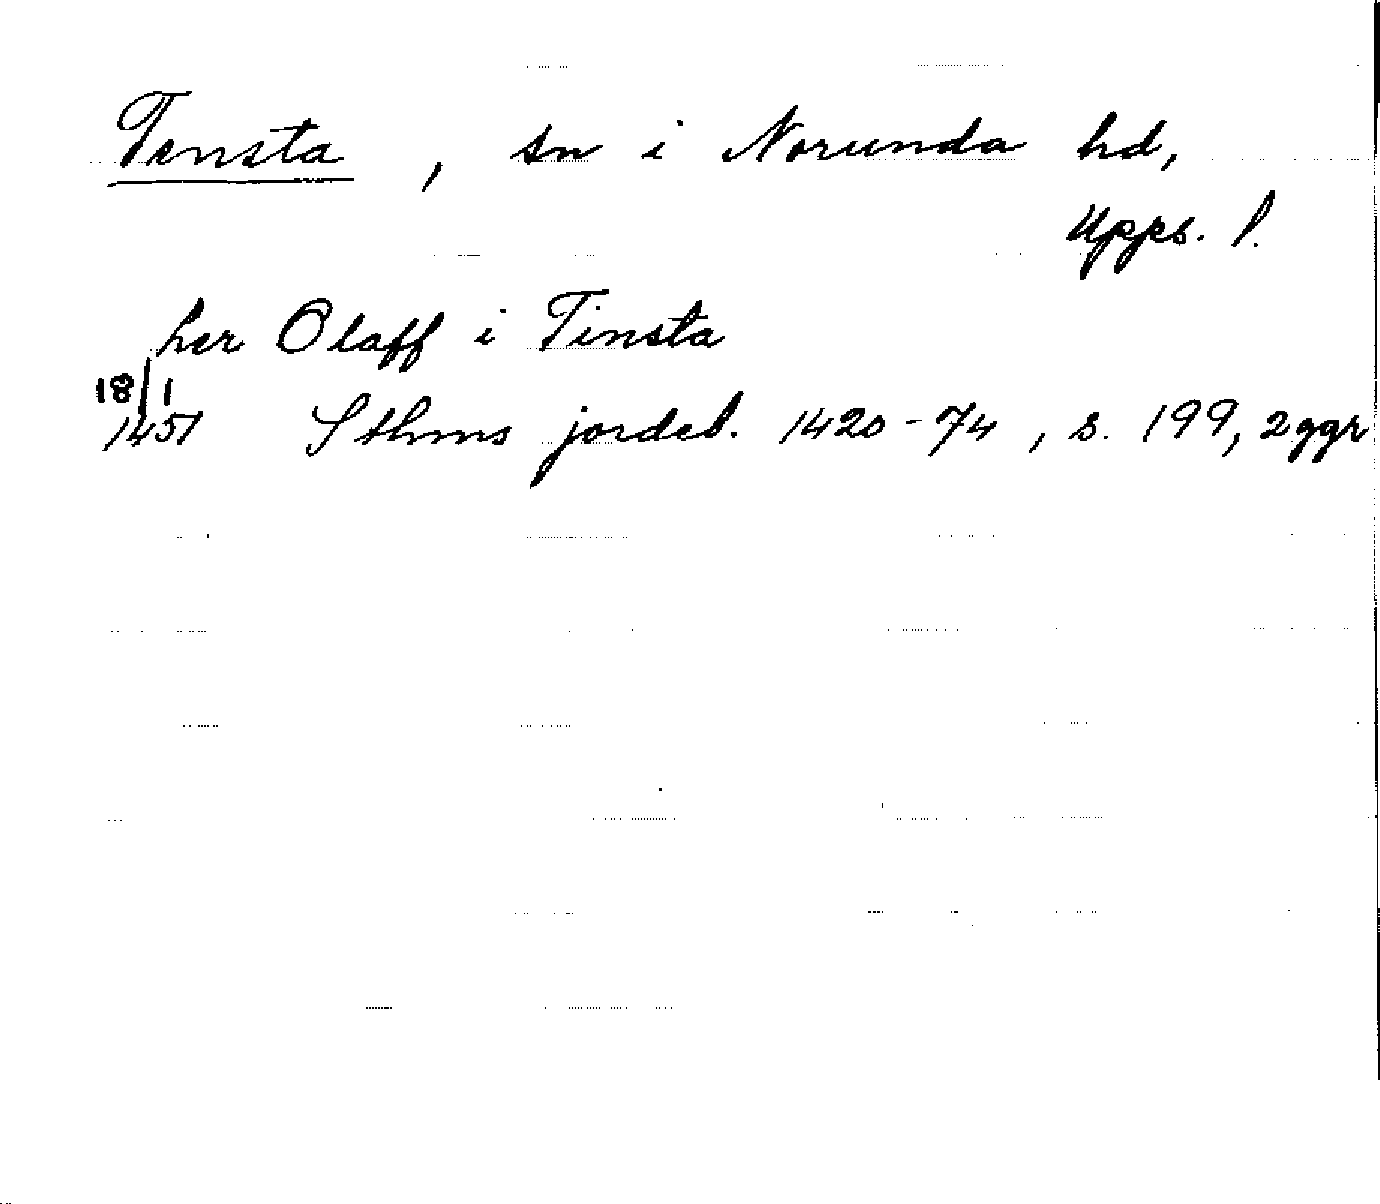 Tensta, sn i Norunda hd,
Upps. l.
her Olaff i Tinsta
18/1
1451 Sthms jordeb. 1420-74, s. 199, 2 ggr